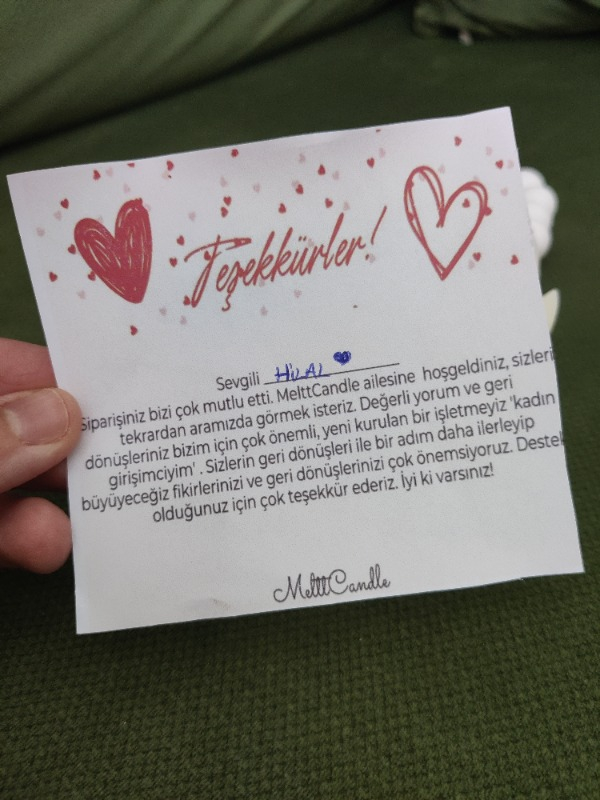 Teşekkürler!
Sevgili
Siparişiniz bizi çok mutlu etti. MelttCandle ailesine hoşgeldiniz, sizleri
tekrardan aramızda görmek isteriz. Değerli yorum ve geri
dönüşleriniz bizim için çok önemli, yeni kurulan bir işletmeyiz 'kadın
girişimciyim' . Sizlerin geri dönüşleri ile bir adım daha ilerleyip
büyüyeceğiz fikirlerinizi ve geri dönüşlerinizi çok önemsiyoruz. Destek
olduğunuz için çok teşekkür ederiz. İyi ki varsınız!
MelttCandle